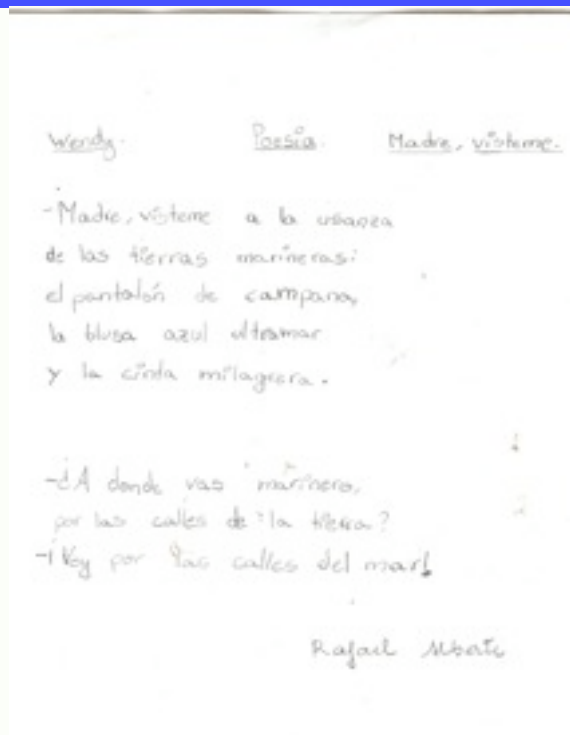 Wendy. Poesía. Madre, vísteme.
-Madre, vísteme a la usanza
de las tierras marineras:
el pantalón de campana,
la blusa azul ultramar
y la cinta milagrera.
-¿A donde vas marinero,
por las calles de la tierra?
-¡Voy por las calles del mar!
Rafael Alberti